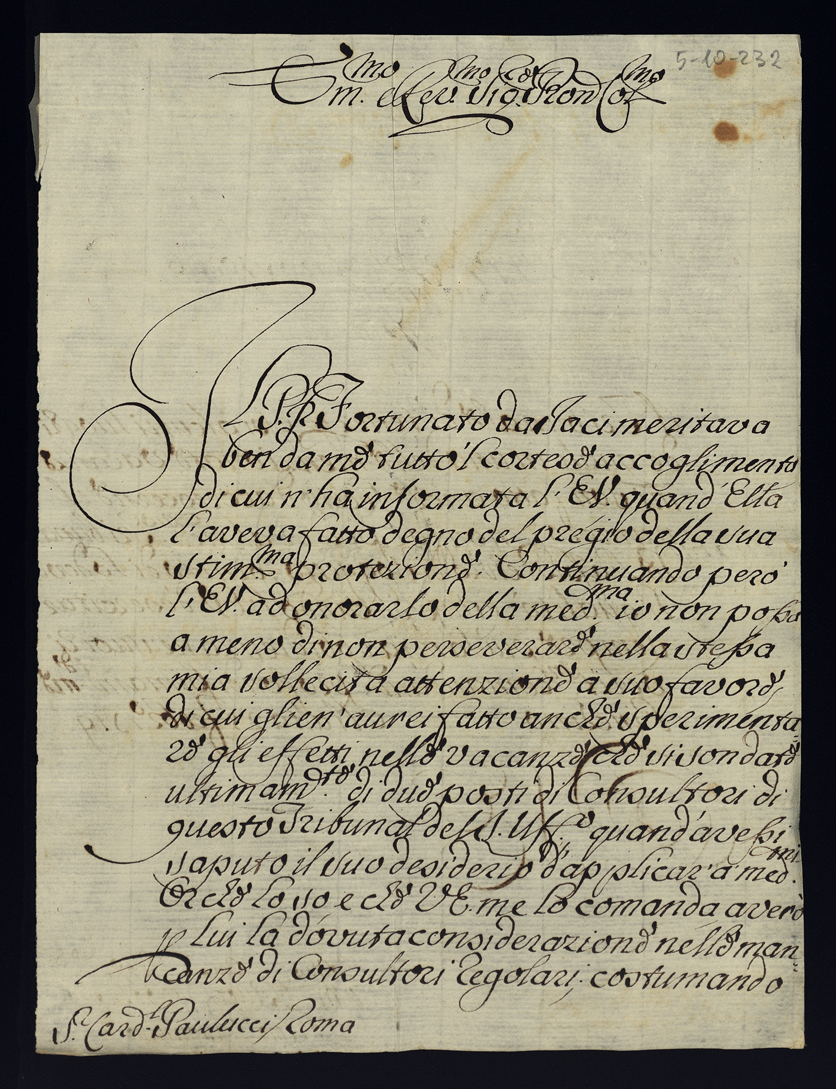 5-10-232
Em.mo e Rev.mo Sig.r Pron Col.mo
Il P. Fr. Fortunato da Jaci meritava
ben da me tutto'l cortese accoglimento
di cui n'ha informata l'EV. quand'Ella
l'aveva fatto degno del pregio della sua
stim.ma protezione. Continuando però
l'EV. ad onorarlo della med.ma io non posso
a meno di non perseverare nella stessa
mia sollecita attenzione a suo favore,
di cui glien'aurei fatto anche sperimenta-
re gli effetti nelle vacanze che si son date
ultimam.te di due posti di Consultori di
questo Tribunal del S. Uff.o quand'avessi
saputo il suo desiderio d'applicar a med.mi
Or che lo so e che VE. me lo comanda averò
p lui la dovuta considerazione nelle man-
canze di Consultori Regolari; costumando
S.r Card.l Paulucci Roma